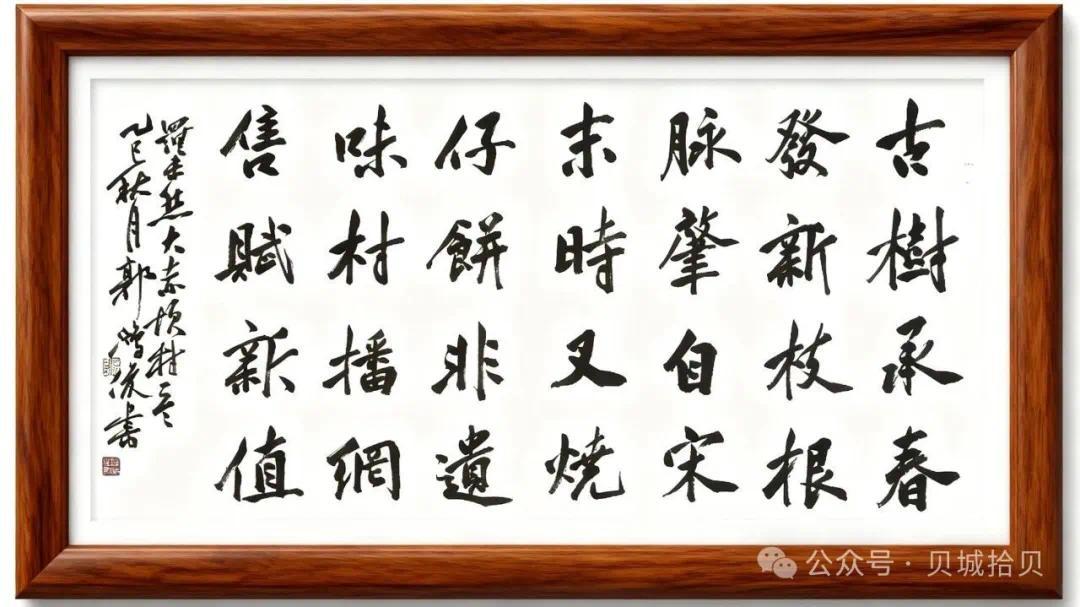 古樹承春
發新枝根
脉肇自宋
末時又燒
仔餅非遺
味村播網
售賦新值
大赤坎村
乙巳秋月郭
書
公众号·贝城拾贝